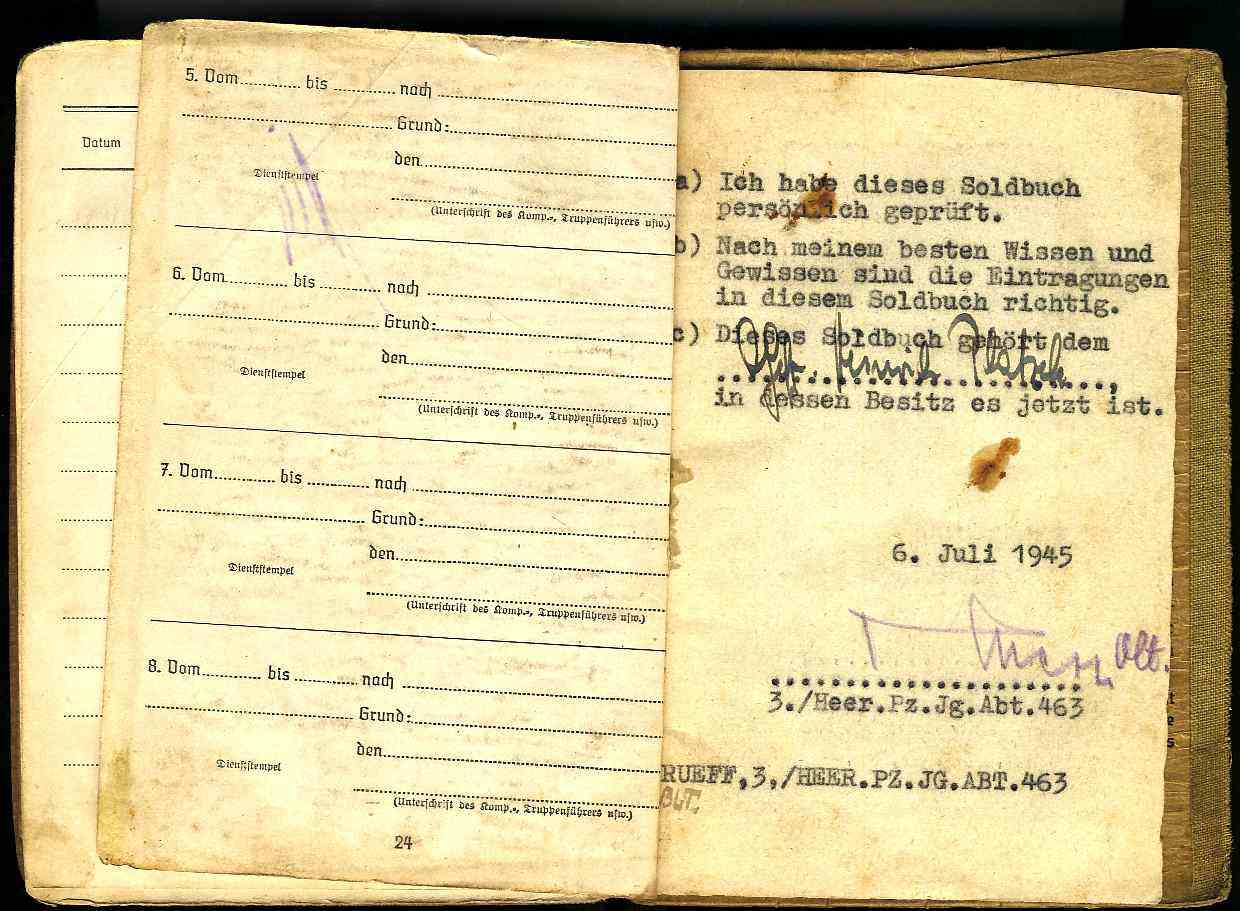 Datum
5. Vom ........... bis ........... nach ...........
........... Grund: ...........
den ...........
Dienststempel
(Unterschrift des Komp.-, Truppenführers usw.)
6. Vom ........... bis ........... nach ...........
........... Grund: ...........
den ...........
Dienststempel
(Unterschrift des Komp.-, Truppenführers usw.)
7. Vom ........... bis ........... nach ...........
........... Grund: ...........
den ...........
Dienststempel
(Unterschrift des Komp.-, Truppenführers usw.)
8. Vom ........... bis ........... nach ...........
........... Grund: ...........
den ...........
Dienststempel
(Unterschrift des Komp.-, Truppenführers usw.)
24
a) Ich habe dieses Soldbuch
persönlich geprüft.
b) Nach meinem besten Wissen und
Gewissen sind die Eintragungen
in diesem Soldbuch richtig.
c) Dieses Soldbuch gehört dem
Heinrich
in dessen Besitz es jetzt ist.
6. Juli 1945
Olt.
3./Heer.Pz.Jg.Abt.463
RUEFF,3,/HEER.PZ.JG.ABT.463
OLT.